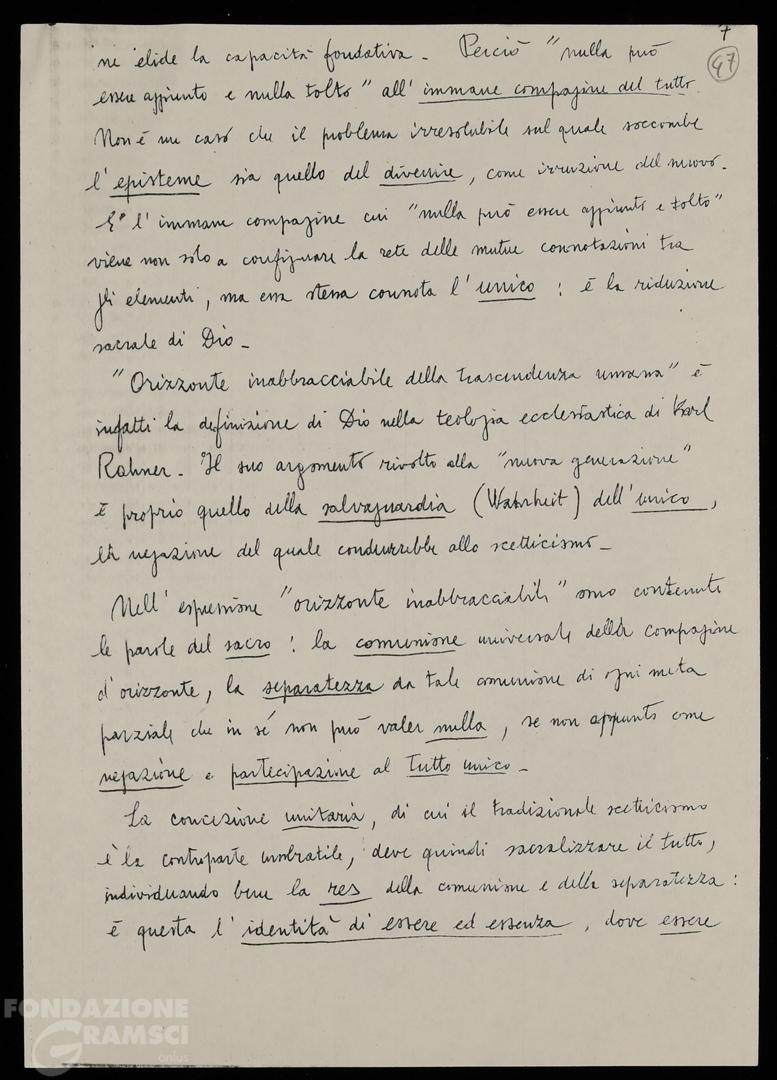 7
47
ne elide la capacità fondativa – Perciò "nulla può
essere aggiunto e nulla tolto" all'immane compagine del tutto.
Non è un caso che il problema irresolubile sul quale soccombe
l'episteme sia quello del divenire, come irruzione del nuovo –
E' l'immane compagine cui "nulla può essere aggiunto e tolto"
viene non solo a configurare la rete delle mutue connotazioni tra
gli elementi, ma essa stessa connota l'unico : è la riduzione
sacrale di Dio –
"Orizzonte inabbracciabile della trascendenza umana" è
infatti la definizione di Dio nella teologia ecclesiastica di Karl
Rahner – Il suo argomento rivolto alla "nuova generazione"
è proprio quello della salvaguardia (Wahrheit) dell'unico,
la negazione del quale condurrebbe allo scetticismo –
Nell'espressione "orizzonte inabbracciabile" sono contenute
le parole del sacro : la comunione universale della compagine
d'orizzonte, la separatezza da tale comunione di ogni meta
parziale che in sé non può valer nulla, se non appunto come
negazione e partecipazione al Tutto unico –
La concezione unitaria, di cui il tradizionale scetticismo
è la controparte umbratile, deve quindi sacralizzare il tutto,
individuando bene la res della comunione e della separatezza :
è questa l'identità di essere ed essenza, dove essere
FONDAZIONE
GRAMSCI
onlus